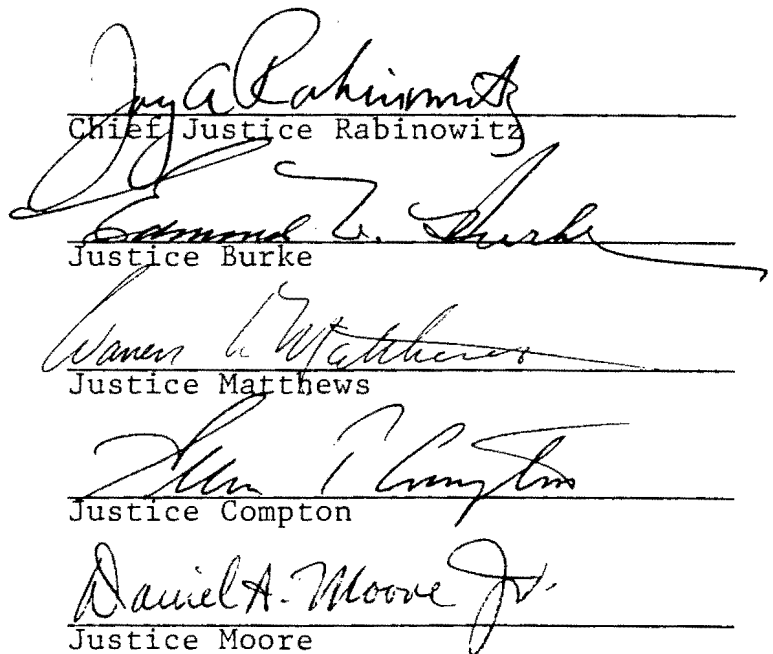 Jay A Rabinowitz
Chief Justice Rabinowitz
Edmond W. Burke
Justice Burke
Warren W Matthews
Justice Matthews
Compton
Justice Compton
Daniel A. Moore Jr.
Justice Moore